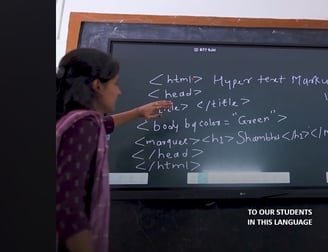 <html> Hyper text Marku
<head>
title> </title>
<body bgcolor = "Green">
<marquee><h1> Shambhu </h1></m
</head>
</html>
TO OUR STUDENTS
IN THIS LANGUAGE